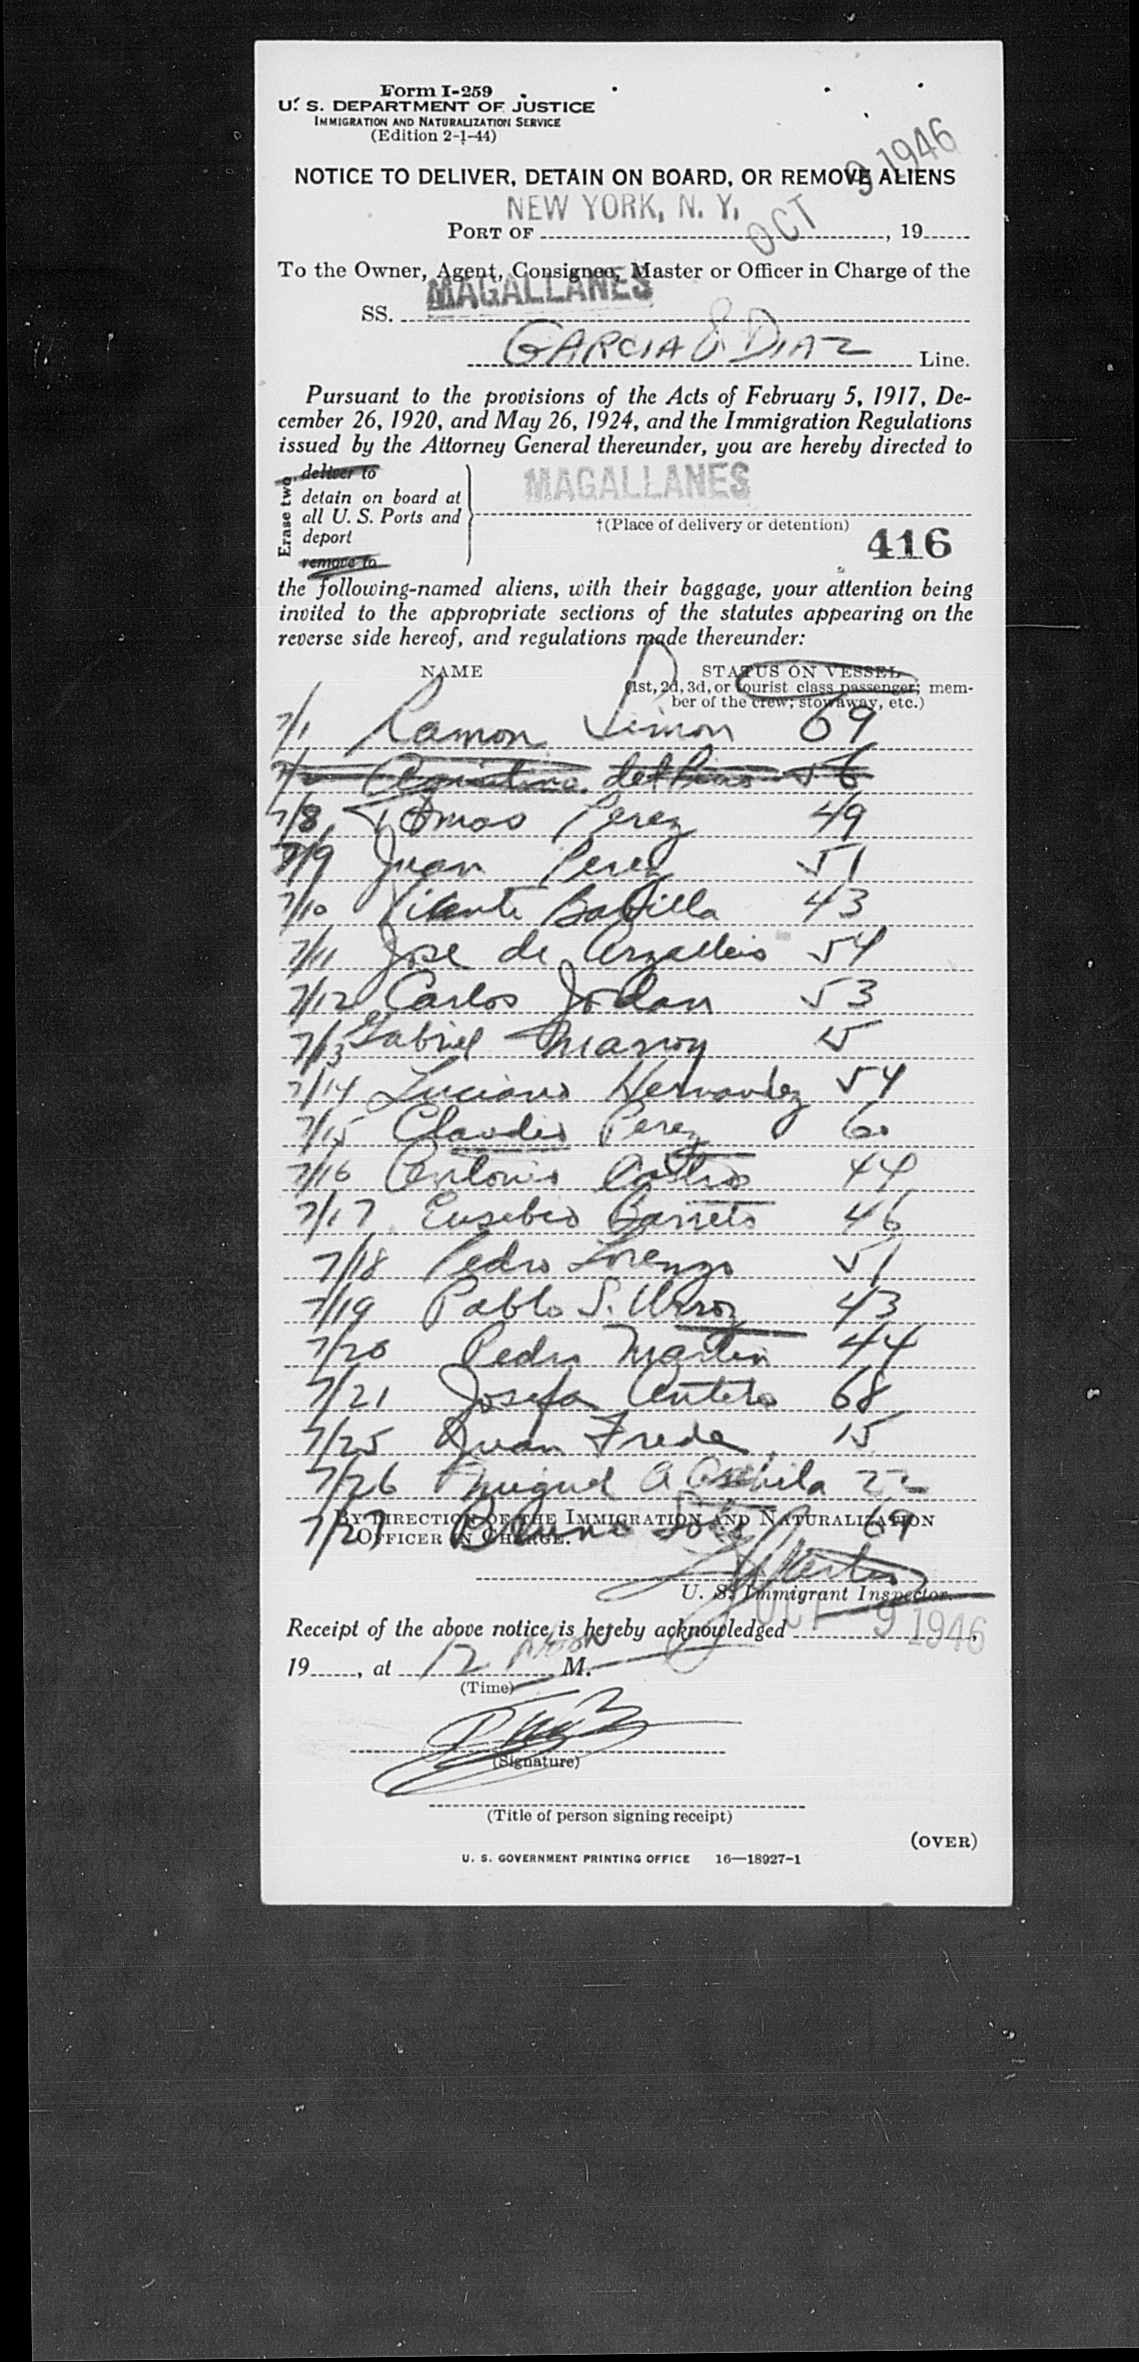 Form I-259
U. S. DEPARTMENT OF JUSTICE
IMMIGRATION AND NATURALIZATION SERVICE
(Edition 2-1-44)
NOTICE TO DELIVER, DETAIN ON BOARD, OR REMOVE ALIENS
OCT 9 1946
NEW YORK, N. Y.
PORT OF , 19
To the Owner, Agent, Consignee, Master or Officer in Charge of the
SS. MAGALLANES
GARCIA & DIAZ Line.
Pursuant to the provisions of the Acts of February 5, 1917, De-
cember 26, 1920, and May 26, 1924, and the Immigration Regulations
issued by the Attorney General thereunder, you are hereby directed to
Erase two
deliver to
detain on board at
all U. S. Ports and
deport
remove to
MAGALLANES
†(Place of delivery or detention)
416
the following-named aliens, with their baggage, your attention being
invited to the appropriate sections of the statutes appearing on the
reverse side hereof, and regulations made thereunder:
NAME STATUS ON VESSEL
(1st, 2d, 3d, or tourist class passenger; mem-
ber of the crew; stowaway, etc.)
7/1 Ramon Simon 69
del 56
7/8 Tomas Perez 49
7/9 Juan Perez 51
7/10 Vicente Babilla 43
7/11 Jose de 54
7/12 Carlos Jordan 53
7/13 Gabriel 15
7/14 Luciano Hernandez 54
7/15 Claudio Perez 60
7/16 Antonio Castros 44
7/17 Eusebio Barreto 46
7/18 Pedro Lorenzo 51
7/19 Pablo S. Urroz 43
7/20 Pedro Martin 44
7/21 Josefa Antero 68
7/25 Juan Freda 15
7/26 Miguel A 22
7/27 Bruno 69
BY DIRECTION OF THE IMMIGRATION AND NATURALIZATION
OFFICER IN CHARGE.
U. S. Immigrant Inspector.
Receipt of the above notice is hereby acknowledged OCT 9 1946,
19 , at 12 noon M.
(Time)
(Signature)
(Title of person signing receipt)
(OVER)
U. S. GOVERNMENT PRINTING OFFICE 16—18927-1